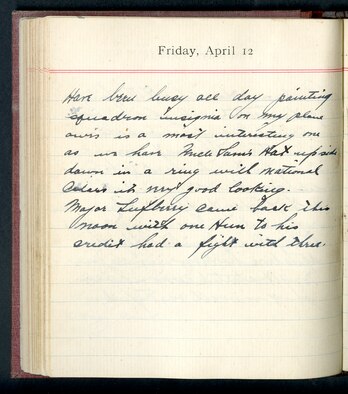 Friday, April 12
Have been busy all day painting
squadron insignia on my plane
ours is a most interesting one
as we have Uncle Sam's Hat upside
down in a ring with national
colors its very good looking.
Major Lufberry came back this
noon with one Hun to his
credit had a fight with three.